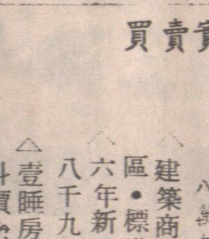 買賣
△建築商
區•標
六年新
八千九
△壹睡房